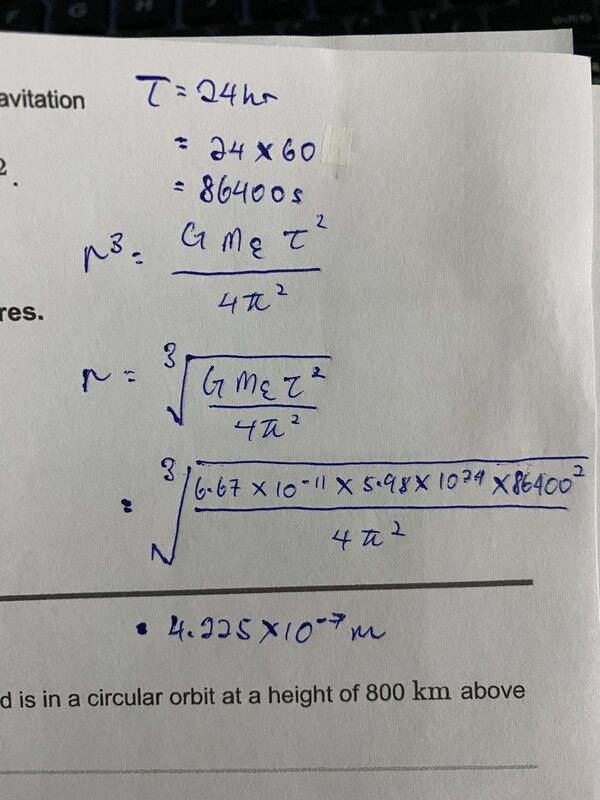 avitation
T = 24hr
= 24 × 60
2.
= 86400s
r³ = G M_E T² / 4π²
res.
r = ∛(G M_E T² / 4π²)
= ∛(6.67 × 10⁻¹¹ × 5.98 × 10²⁴ × 86400² / 4π²)
• 4.225 × 10⁻⁷ m
d is in a circular orbit at a height of 800 km above